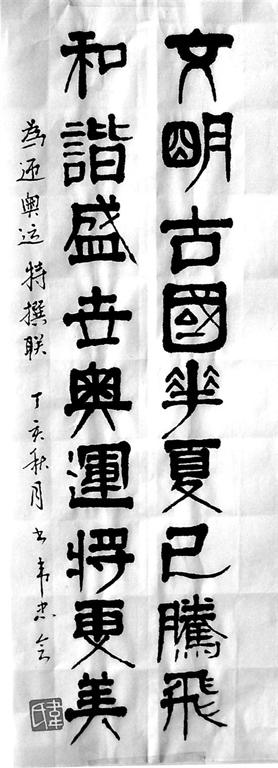 文明古國華夏已騰飛
和諧盛世奧運將更美
為迎奥运特撰联 丁亥秋月 韦忠
韋氏